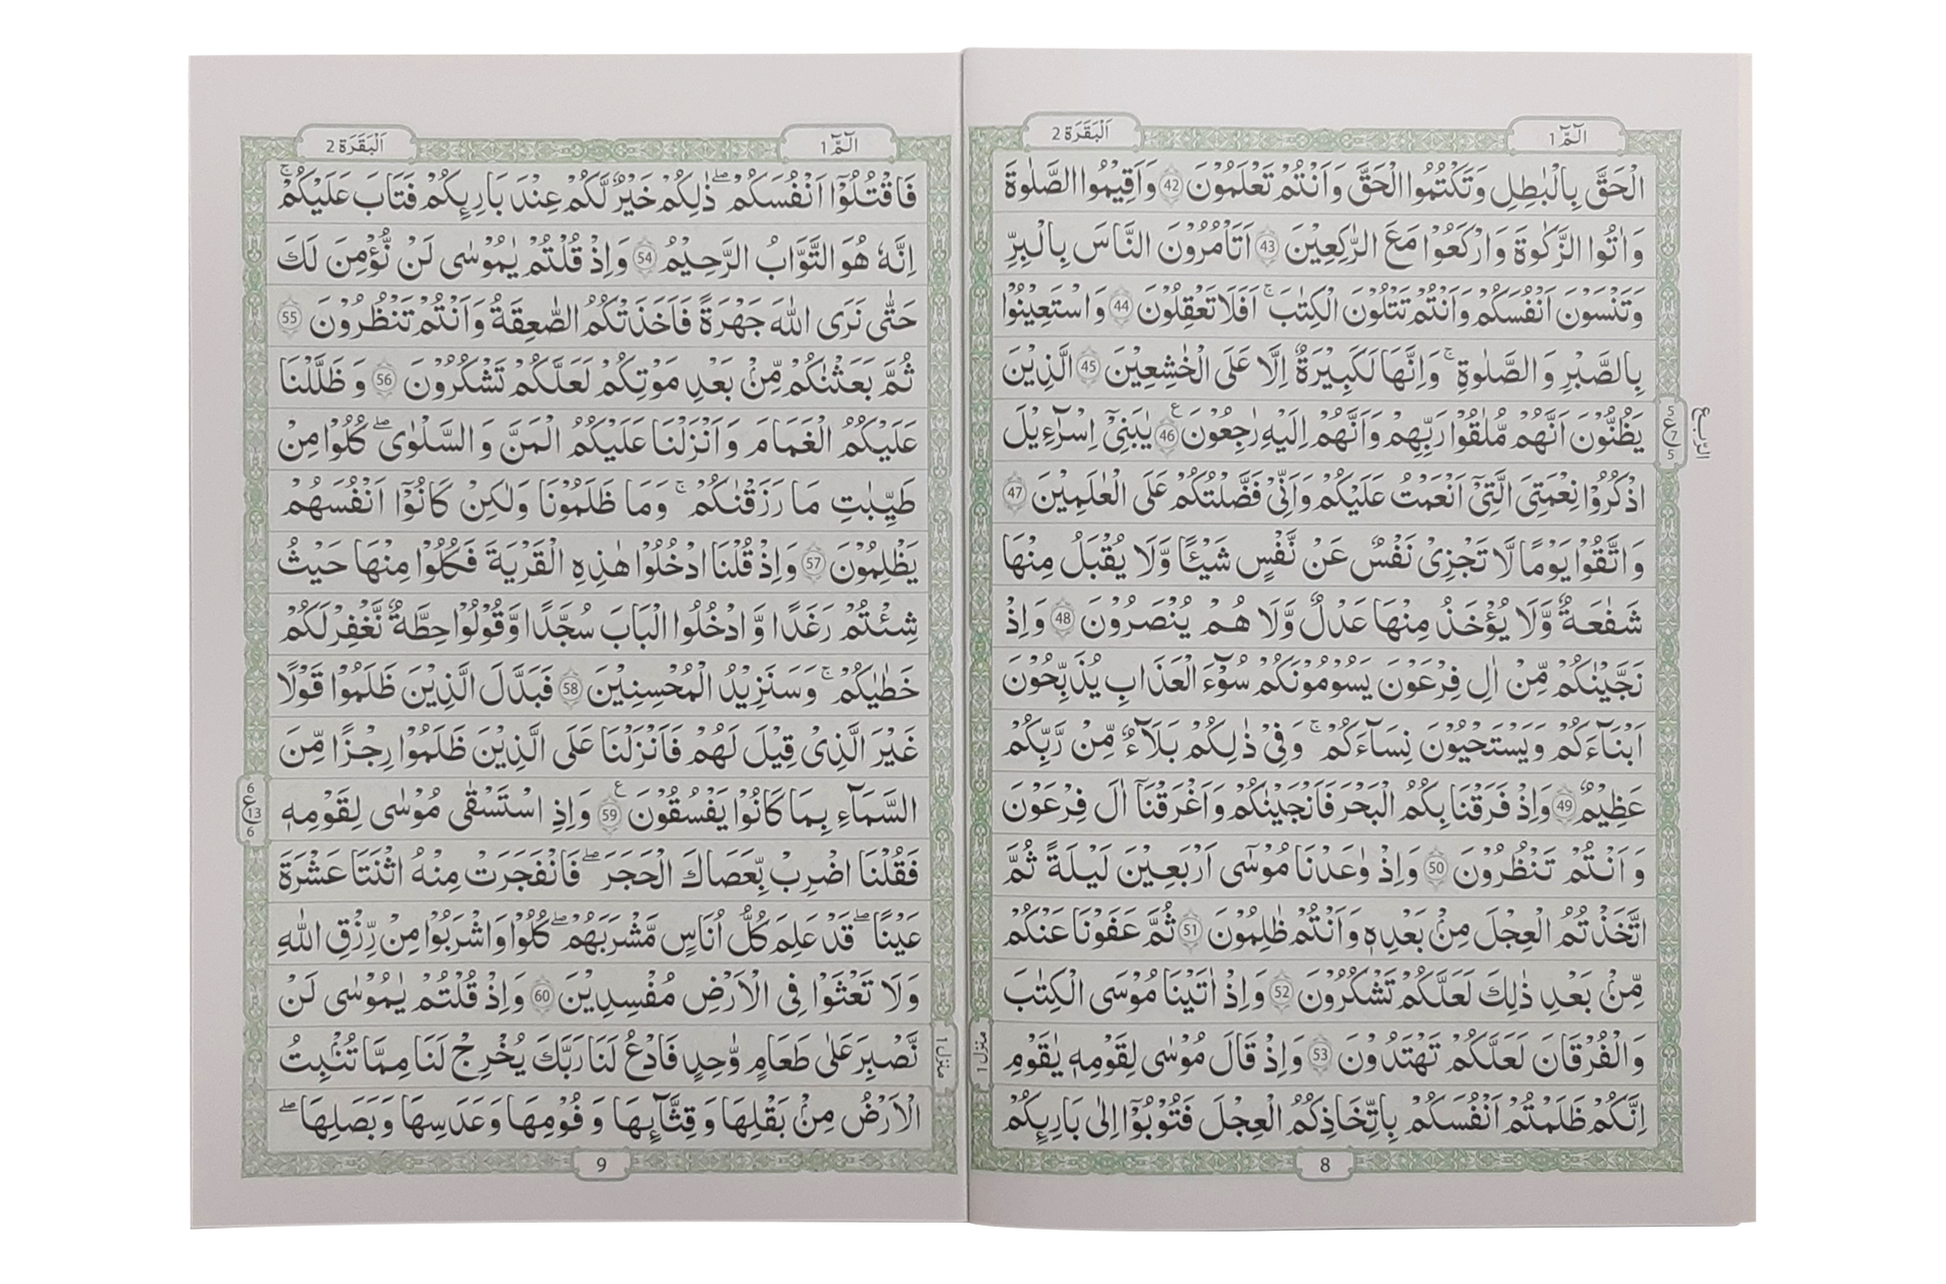 الٓمّٓ 1
اَلْبَقَرَة 2
الْحَقَّ بِالْبٰطِلِ وَتَكْتُمُوا الْحَقَّ وَاَنْتُمْ تَعْلَمُوْنَ 42 وَاَقِيْمُوا الصَّلٰوةَ
وَاٰتُوا الزَّكٰوةَ وَارْكَعُوْا مَعَ الرّٰكِعِيْنَ 43 اَتَاْمُرُوْنَ النَّاسَ بِالْبِرِّ
وَتَنْسَوْنَ اَنْفُسَكُمْ وَاَنْتُمْ تَتْلُوْنَ الْكِتٰبَ ۚ اَفَلَا تَعْقِلُوْنَ 44 وَاسْتَعِيْنُوْا
بِالصَّبْرِ وَالصَّلٰوةِ ۚ وَاِنَّهَا لَكَبِيْرَةٌ اِلَّا عَلَى الْخٰشِعِيْنَ 45 الَّذِيْنَ
يَظُنُّوْنَ اَنَّهُمْ مُّلٰقُوْا رَبِّهِمْ وَاَنَّهُمْ اِلَيْهِ رٰجِعُوْنَ ع 46 يٰبَنِيْٓ اِسْرَآءِيْلَ
5 ع 7 5
الرّبع
اذْكُرُوْا نِعْمَتِيَ الَّتِيْٓ اَنْعَمْتُ عَلَيْكُمْ وَاَنِّيْ فَضَّلْتُكُمْ عَلَى الْعٰلَمِيْنَ 47
وَاتَّقُوْا يَوْمًا لَّا تَجْزِيْ نَفْسٌ عَنْ نَّفْسٍ شَيْـًٔا وَّلَا يُقْبَلُ مِنْهَا
شَفٰعَةٌ وَّلَا يُؤْخَذُ مِنْهَا عَدْلٌ وَّلَا هُمْ يُنْصَرُوْنَ 48 وَاِذْ
نَجَّيْنٰكُمْ مِّنْ اٰلِ فِرْعَوْنَ يَسُوْمُوْنَكُمْ سُوْٓءَ الْعَذَابِ يُذَبِّحُوْنَ
اَبْنَآءَكُمْ وَيَسْتَحْيُوْنَ نِسَآءَكُمْ ۚ وَفِيْ ذٰلِكُمْ بَلَآءٌ مِّنْ رَّبِّكُمْ
عَظِيْمٌ 49 وَاِذْ فَرَقْنَا بِكُمُ الْبَحْرَ فَاَنْجَيْنٰكُمْ وَاَغْرَقْنَآ اٰلَ فِرْعَوْنَ
وَاَنْتُمْ تَنْظُرُوْنَ 50 وَاِذْ وٰعَدْنَا مُوْسٰٓى اَرْبَعِيْنَ لَيْلَةً ثُمَّ
اتَّخَذْتُمُ الْعِجْلَ مِنْۢ بَعْدِهٖ وَاَنْتُمْ ظٰلِمُوْنَ 51 ثُمَّ عَفَوْنَا عَنْكُمْ
مِّنْۢ بَعْدِ ذٰلِكَ لَعَلَّكُمْ تَشْكُرُوْنَ 52 وَاِذْ اٰتَيْنَا مُوْسَى الْكِتٰبَ
وَالْفُرْقَانَ لَعَلَّكُمْ تَهْتَدُوْنَ 53 وَاِذْ قَالَ مُوْسٰى لِقَوْمِهٖ يٰقَوْمِ
اِنَّكُمْ ظَلَمْتُمْ اَنْفُسَكُمْ بِاتِّخَاذِكُمُ الْعِجْلَ فَتُوْبُوْٓا اِلٰى بَارِىِٕكُمْ
منزل 1
8
الٓمّٓ 1
اَلْبَقَرَة 2
فَاقْتُلُوْٓا اَنْفُسَكُمْ ۖ ذٰلِكُمْ خَيْرٌ لَّكُمْ عِنْدَ بَارِىِٕكُمْ فَتَابَ عَلَيْكُمْ ۚ
اِنَّهٗ هُوَ التَّوَّابُ الرَّحِيْمُ 54 وَاِذْ قُلْتُمْ يٰمُوْسٰى لَنْ نُّؤْمِنَ لَكَ
حَتّٰى نَرَى اللّٰهَ جَهْرَةً فَاَخَذَتْكُمُ الصّٰعِقَةُ وَاَنْتُمْ تَنْظُرُوْنَ 55
ثُمَّ بَعَثْنٰكُمْ مِّنْۢ بَعْدِ مَوْتِكُمْ لَعَلَّكُمْ تَشْكُرُوْنَ 56 وَظَلَّلْنَا
عَلَيْكُمُ الْغَمَامَ وَاَنْزَلْنَا عَلَيْكُمُ الْمَنَّ وَالسَّلْوٰى ۖ كُلُوْا مِنْ
طَيِّبٰتِ مَا رَزَقْنٰكُمْ ۚ وَمَا ظَلَمُوْنَا وَلٰكِنْ كَانُوْٓا اَنْفُسَهُمْ
يَظْلِمُوْنَ 57 وَاِذْ قُلْنَا ادْخُلُوْا هٰذِهِ الْقَرْيَةَ فَكُلُوْا مِنْهَا حَيْثُ
شِئْتُمْ رَغَدًا وَّادْخُلُوا الْبَابَ سُجَّدًا وَّقُوْلُوْا حِطَّةٌ نَّغْفِرْ لَكُمْ
خَطٰيٰكُمْ ۚ وَسَنَزِيْدُ الْمُحْسِنِيْنَ 58 فَبَدَّلَ الَّذِيْنَ ظَلَمُوْا قَوْلًا
غَيْرَ الَّذِيْ قِيْلَ لَهُمْ فَاَنْزَلْنَا عَلَى الَّذِيْنَ ظَلَمُوْا رِجْزًا مِّنَ
السَّمَآءِ بِمَا كَانُوْا يَفْسُقُوْنَ ع 59 وَاِذِ اسْتَسْقٰى مُوْسٰى لِقَوْمِهٖ
6 ع 13 6
فَقُلْنَا اضْرِبْ بِّعَصَاكَ الْحَجَرَ ۖ فَانْفَجَرَتْ مِنْهُ اثْنَتَا عَشْرَةَ
عَيْنًا ۖ قَدْ عَلِمَ كُلُّ اُنَاسٍ مَّشْرَبَهُمْ ۖ كُلُوْا وَاشْرَبُوْا مِنْ رِّزْقِ اللّٰهِ
وَلَا تَعْثَوْا فِى الْاَرْضِ مُفْسِدِيْنَ 60 وَاِذْ قُلْتُمْ يٰمُوْسٰى لَنْ
نَّصْبِرَ عَلٰى طَعَامٍ وَّاحِدٍ فَادْعُ لَنَا رَبَّكَ يُخْرِجْ لَنَا مِمَّا تُنْۢبِتُ
الْاَرْضُ مِنْۢ بَقْلِهَا وَقِثَّآىِٕهَا وَفُوْمِهَا وَعَدَسِهَا وَبَصَلِهَا ۖ
منزل 1
9